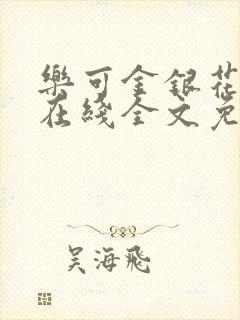 樂可金銀花
在綫全文免
吴海飛